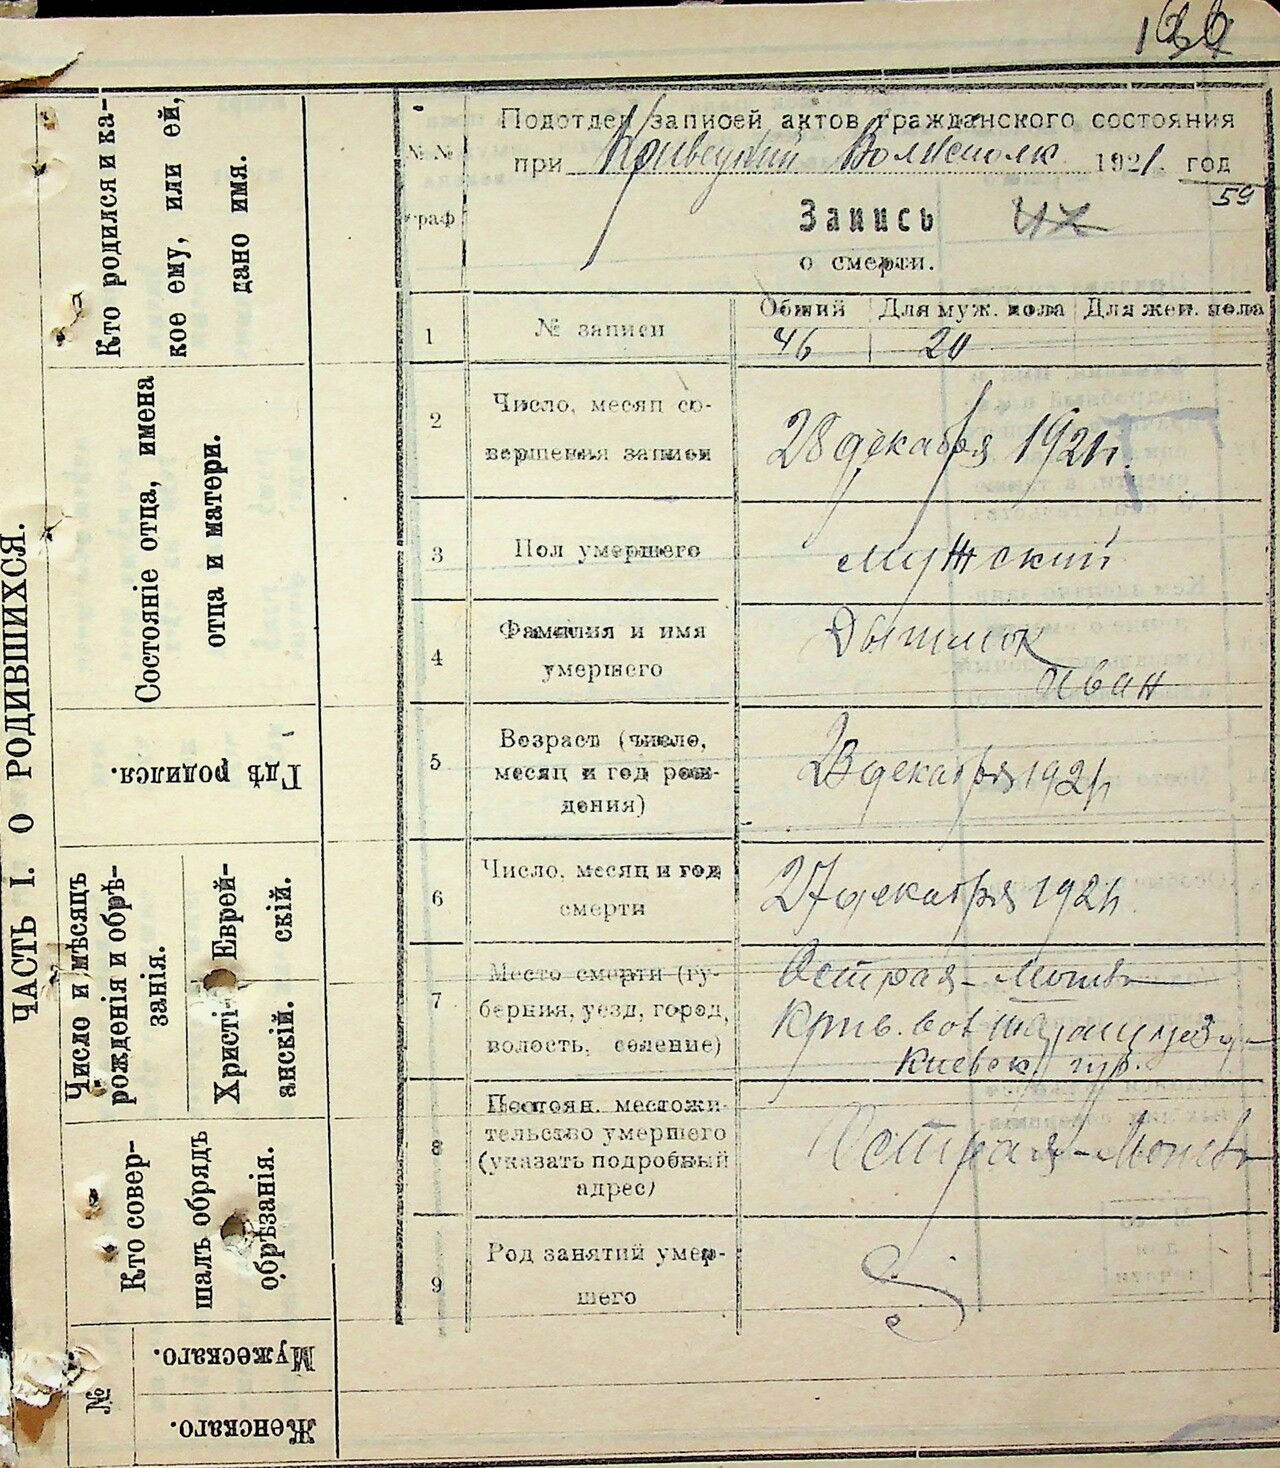 Подотдел записей актов гражданского состояния
при Кривецкий Волисполк 1921 год
59
№№ граф
Запись
о смерти.
Общий Для муж. пола Для жен. пола
1 № записи 46 20
2 Число, месяц со-
вершения записи 28 декабря 1921 г.
3 Пол умершего мужской
4 Фамилия и имя
умершего Иван
5 Возраст (число,
месяц и год рож-
дения) 23 декабря 1921 г
6 Число, месяц и год
смерти 27 декабря 1921 г.
7 Место смерти (гу-
берния, уезд, город,
волость, селение)
Острая-Могила
Крив. вол Таращ уезд
Киевск губ.
8 Постоян. местожи-
тельство умершего
(указать подробный
адрес)
Острая-Могила
9 Род занятий умер-
шего
ЧАСТЬ I. О РОДИВШИХСЯ.
Кто родился и ка-
кое ему, или ей,
дано имя.
Состояніе отца, имена
отца и матери.
Гдѣ родился.
Число и мѣсяцъ
рожденія и обрѣ-
занія.
Христі-
анскій.
Еврей-
скій.
Кто совер-
шалъ обрядъ
обрѣзанія.
№
Мужескаго.
Женскаго.